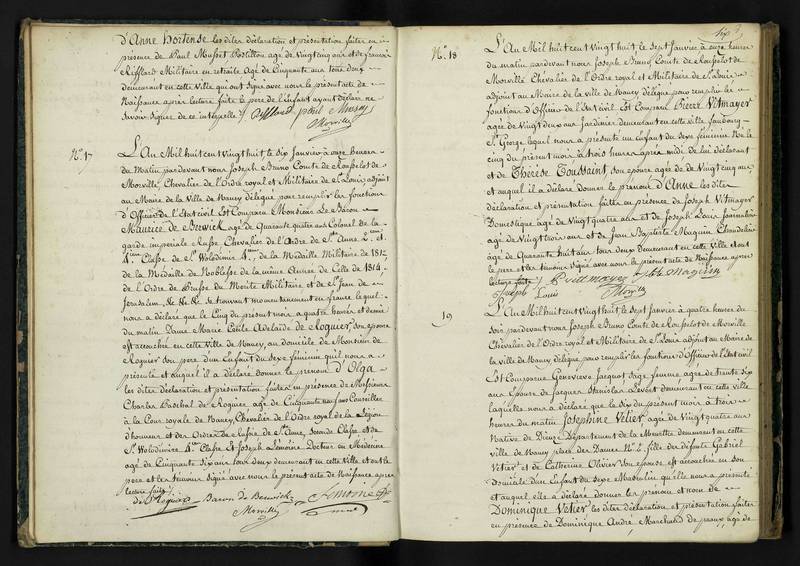 d'Anne Hortense les dites déclaration et présentation faites en
présence de Paul Musset Postillon agé de vingt cinq ans et de francois
Rifflard Militaire en retraite Agé de Cinquante ans tous deux
demeurant en cette Ville qui ont signé avec nous le présent acte de
Naissance après lecture faite le pere de l'Enfant ayant déclaré ne
savoir signer de ce interpellé
Morville
N.º 17
L'An Mil huit cent Vingt huit, le Six Janvier à onze heures
du Matin pardevant nous Joseph Bruno Comte de Rousselot de
Morville, Chevalier de l'Ordre royal et Militaire de S.t Louis adjoint
au Maire de la Ville de Nancy délégué pour remplir les fonctions
d'Officier de l'Etat civil Est Comparu Monsieur Le Baron
Maurice de Berwick agé de Quarante quatre ans Colonel de la
garde impériale Russe Chevalier de l'Ordre de S.te Anne 2.me et
4.eme Classe de S.t Wolodimir 4.me, de la Médaille Militaire de 1812
de la Médaille de Noblesse de la même Année de Celle de 1814
de l'Ordre de Prusse du Mérite Militaire et de S.t Jean de
Jerusalem, &c &c &c se trouvant momentanement en france lequel
nous a déclaré que le Cinq du présent mois a quatre heures et demie
du matin Dame Marie Cécile Adelaïde de Roguier son epouse
est accouchée en cette Ville de Nancy, au domicile de Monsieur de
Roguier son pere d'un Enfant du Sexe féminin qu'il nous a
présenté et auquel il a déclaré donner le prénom d'Olga
les dites déclaration et présentation faites en présence de Messieurs
Charles Paschal de Roguier agé de Cinquante ans Conseiller
à la Cour royale de Nancy, Chevalier de l'Ordre royal de la Légion
d'honneur et des Ordres de Russie de S.te Anne, seconde Classe et de
S.t Wolodimire 4.me Classe et Joseph Lemoine Docteur en Médecine
agé de Cinquante Six ans tous deux demeurant en cette Ville et ont le
pere et les temoins signé avec nous le présent acte de Naissance après
lecture faite
de Roguier Baron de Berwick Lemoine
Morville
N.º 18
L'An Mil huit cent Vingt huit, le Sept Janvier à onze heures
du matin pardevant nous Joseph Bruno Comte de Rousselot de
Morville Chevalier de l'Ordre royal et Militaire de S.t Louis
adjoint au Maire de la Ville de Nancy délégué pour remplir les
fonctions d'Officier de l'Etat civil Est Comparu Pierre Vitmayer
agé de Vingt deux ans Jardinier demeurant en cette ville faubourg
S.t George lequel nous a présenté un Enfant du Sexe féminin Né le
cinq du présent mois à trois heures après midi de lui déclarant
et de Thérèse Toussaint son épouse agée de de Vingt cinq ans
et auquel il a déclaré donner le prénom d'Anne les dites
déclaration et présentation faites en présence de Joseph Vitmayer
Domestique agé de Vingt quatre ans et de Joseph Louis Journalier
agé de Vingt trois ans et de Jean Baptiste Muguin Chandelier
agé de Quarante huit ans tous deux demeurant en cette Ville et ont
le pere et les temoins signé avec nous le présent acte de Naissance après
lecture faite
Joseph Louis
19
L'An Mil huit cent Vingt huit, le Sept janvier à quatre heures du
soir pardevant nous Joseph Bruno Comte de Rousselot de Morville
Chevalier de l'Ordre royal et Militaire de S.t Louis adjoint au Maire de
la Ville de Nancy, délégué pour remplir les fonctions d'Officier de l'Etat civil
Est Comparue Genevieve Jacquot Sage femme agée de trente Six
ans Epouse de Jacques Stanislas demeurant en cette Ville
laquelle nous a déclaré que le Six du présent mois à trois
heures du matin Josephine Vélier, agée de Vingt quatre ans
Native de Dieuze Département de la Meurthe demeurant en cette
ville de Nancy place des Dames fille des défunts Gabriel
Vélier et de Catherine Olivier Son épouse est accouchée en son
domicile d'un Enfant du Sexe Masculin qu'elle nous a présenté
et auquel elle a déclaré donner les prénom et nom de
Dominique Vélier les dites déclaration et présentation faites
en présence de Dominique André, Marchand de peaux, agé de